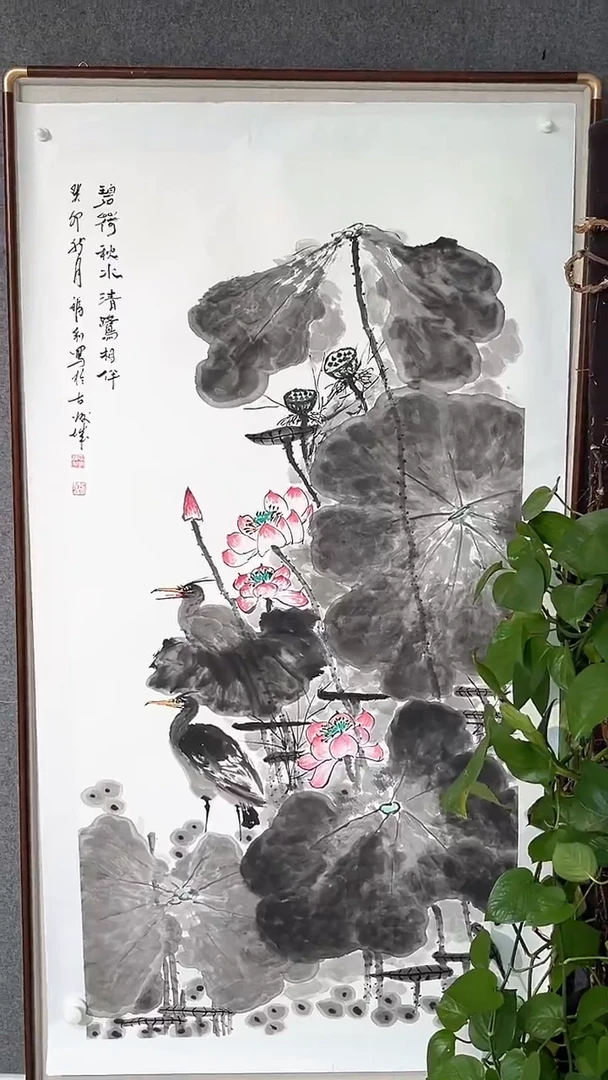 碧荷秋水清鹭相伴
癸卯秋月福和写於古城